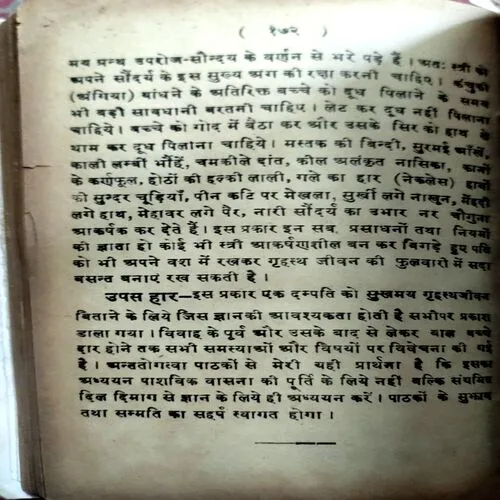 ( १७२ )
मय ग्रन्थ उपरोज-सौन्दय के वर्णन से भरे पड़े हैं । अतः स्त्री को
अपने सौंदर्य के इस मुख्य अंग की रक्षा करनी चाहिए। कंचुकी
(अंगिया) बांधने के अतिरिक्त बच्चे को दूध पिलाने के समय
भी बड़ी सावधानी बरतनी चाहिए । लेट कर दूध नहीं पिलाना
चाहिये । बच्चे को गोद में बैठा कर और उसके सिर को हाथ से
थाम कर दूध पिलाना चाहिये । मस्तक की बिन्दी, सुरमई आँखें,
काली लम्बी भौंहें, चमकीले दांत, कील अलंकृत नासिका, कानों
के कर्णफूल, होठों की हल्की लाली, गले का हार (नेकलेस) हाथों
की सुन्दर चूड़ियाँ, पीन कटि पर मेखला, सुर्खी लगे नाखून, मेंहदी
लगे हाथ, मेहावर लगे पैर, नारी सौंदर्य का उभार नर चौगुना
आकर्षक कर देते हैं । इस प्रकार इन सब प्रसाधनों तथा नियमों
की ज्ञाता हो कोई भी स्त्री आकर्षणशील बन कर बिगड़े हुए पति
को भी अपने वश में रखकर गृहस्थ जीवन की फुलवारी में सदा
बसन्त बनाए रख सकती है ।
उपस हार—इस प्रकार एक दम्पति को सुखमय गृहस्थजीवन
बिताने के लिये जिस ज्ञानकी आवश्यकता होती है सभीपर प्रकाश
डाला गया । विवाह के पूर्व और उसके बाद से लेकर बाल बच्चे
दार होने तक सभी समस्याओं और विषयों पर विवेचना की गई
है । अन्ततोगत्वा पाठकों से मेरी यही प्रार्थना है कि इसका
अध्ययन पाशविक वासना की पूर्ति के लिये नहीं बल्कि संयमित
दिल दिमाग से ज्ञान के लिये ही अध्ययन करें । पाठकों के सुझाव
तथा सम्मति का सहर्ष स्वागत होगा ।